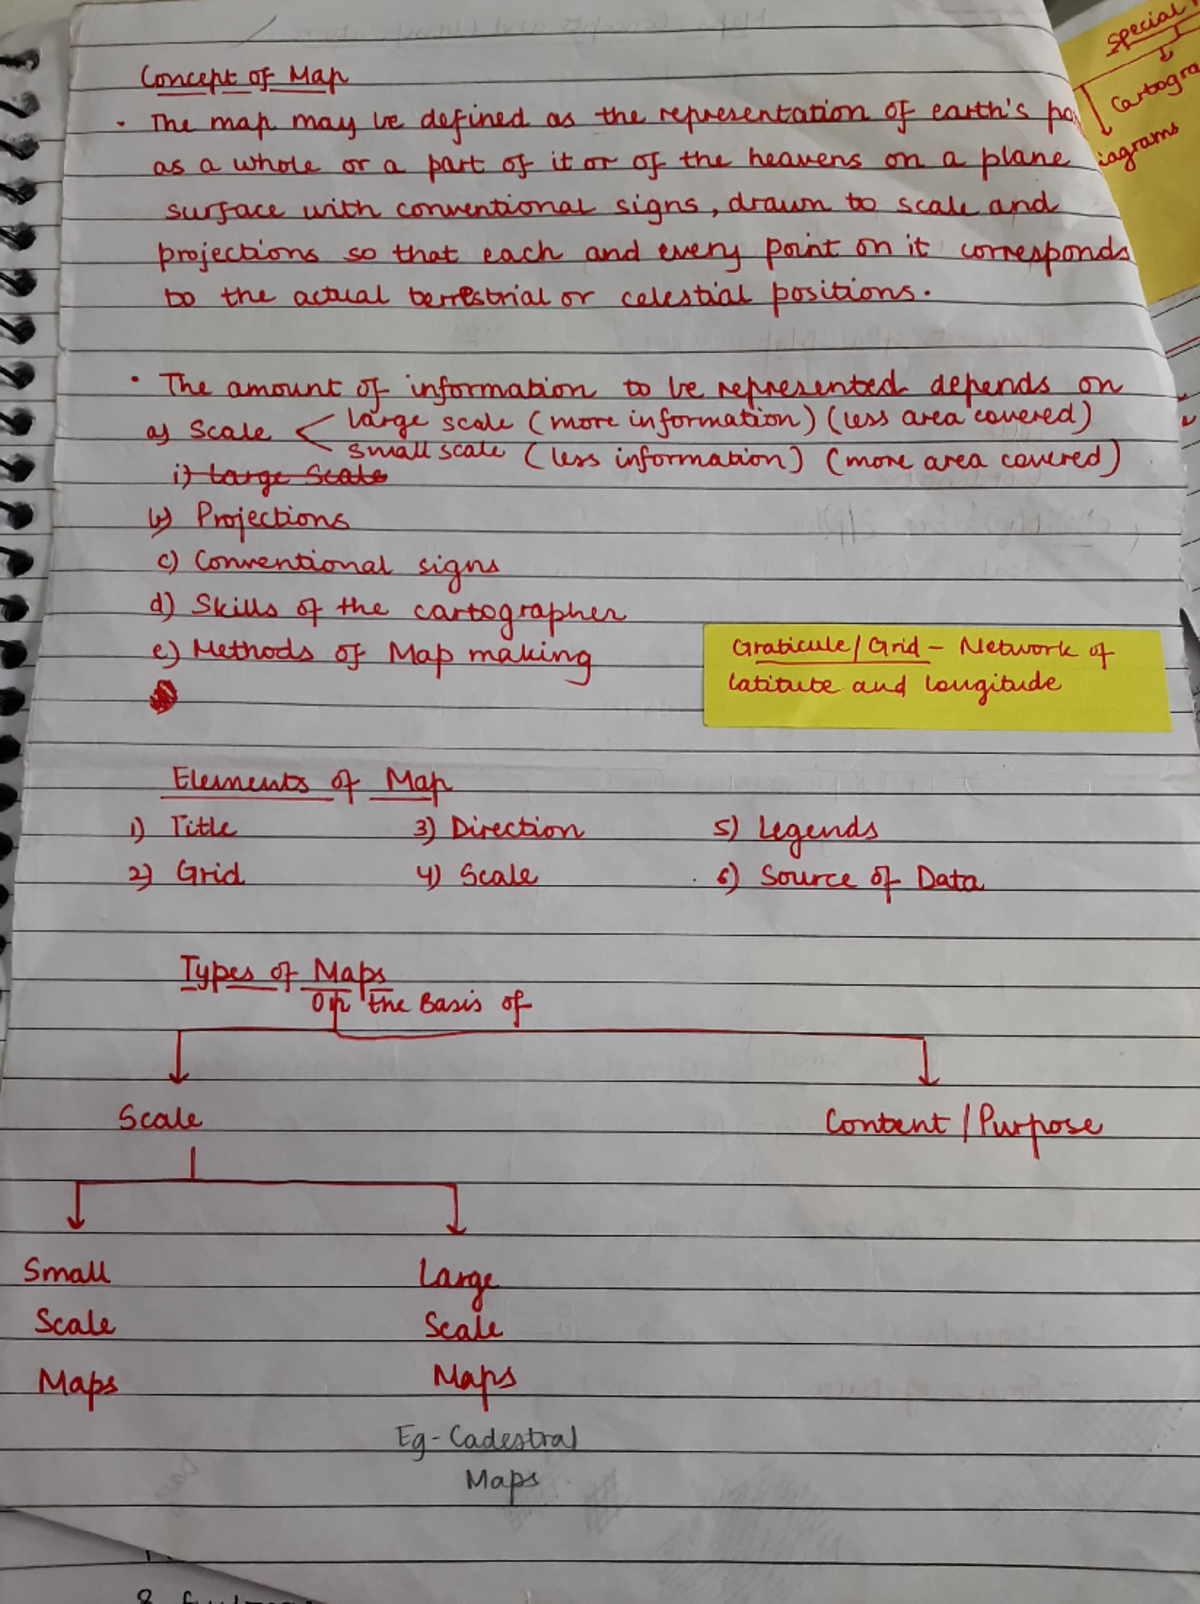 Concept of Map
· The map may be defined as the representation of earth's
as a whole or a part of it or of the heavens on a plane
surface with conventional signs, drawn to scale and
projections so that each and every point on it corresponds
to the actual terrestrial or celestial positions.
· The amount of information to be represented depends on
a) Scale
large scale (more information) (less area covered)
small scale (less information) (more area covered)
i) Large Scale
b) Projections
c) Conventional signs
d) Skills of the cartographer
e) Methods of Map making
Graticule/Grid - Network of
latitute and longitude
Elements of Map
1) Title 3) Direction 5) Legends
2) Grid 4) Scale 6) Source of Data
Types of Maps
On the Basis of
Scale Content / Purpose
Small Large
Scale Scale
Maps Maps
Eg - Cadestral
Maps
Special
Cartogra
iagrams